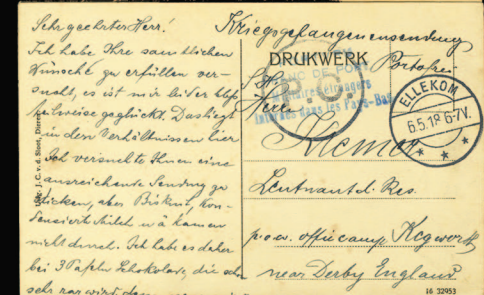 Sehr geehrter Herr!
Ich habe Ihre sämtlichen
Wünsche zu erfüllen ver-
sucht, es ist mir leider bloß
teilweise geglückt. Das liegt
in den Verhältnissen hier
Ich versuchte Ihnen eine
ausreichende Sendung zu
schicken, aber Biskuit, Kon-
densierte Milch u. ä. kamen
nicht durch. Ich habe es daher
bei 3 Tafeln Schokolade, die
sehr rar wird,
Kriegsgefangenensendung
DRUKWERK
Portofrei
FRANC DE PORT
Militaires étrangers
Internés dans les Pays-Bas
ELLEKOM
6.5.18 6-7V.
S. H.
Herrn
Leutnant d. Res.
p.o.w. office camp Kegworth
near Derby England
Uitg. J. C. v. d. Sloot, Dieren
16 32953